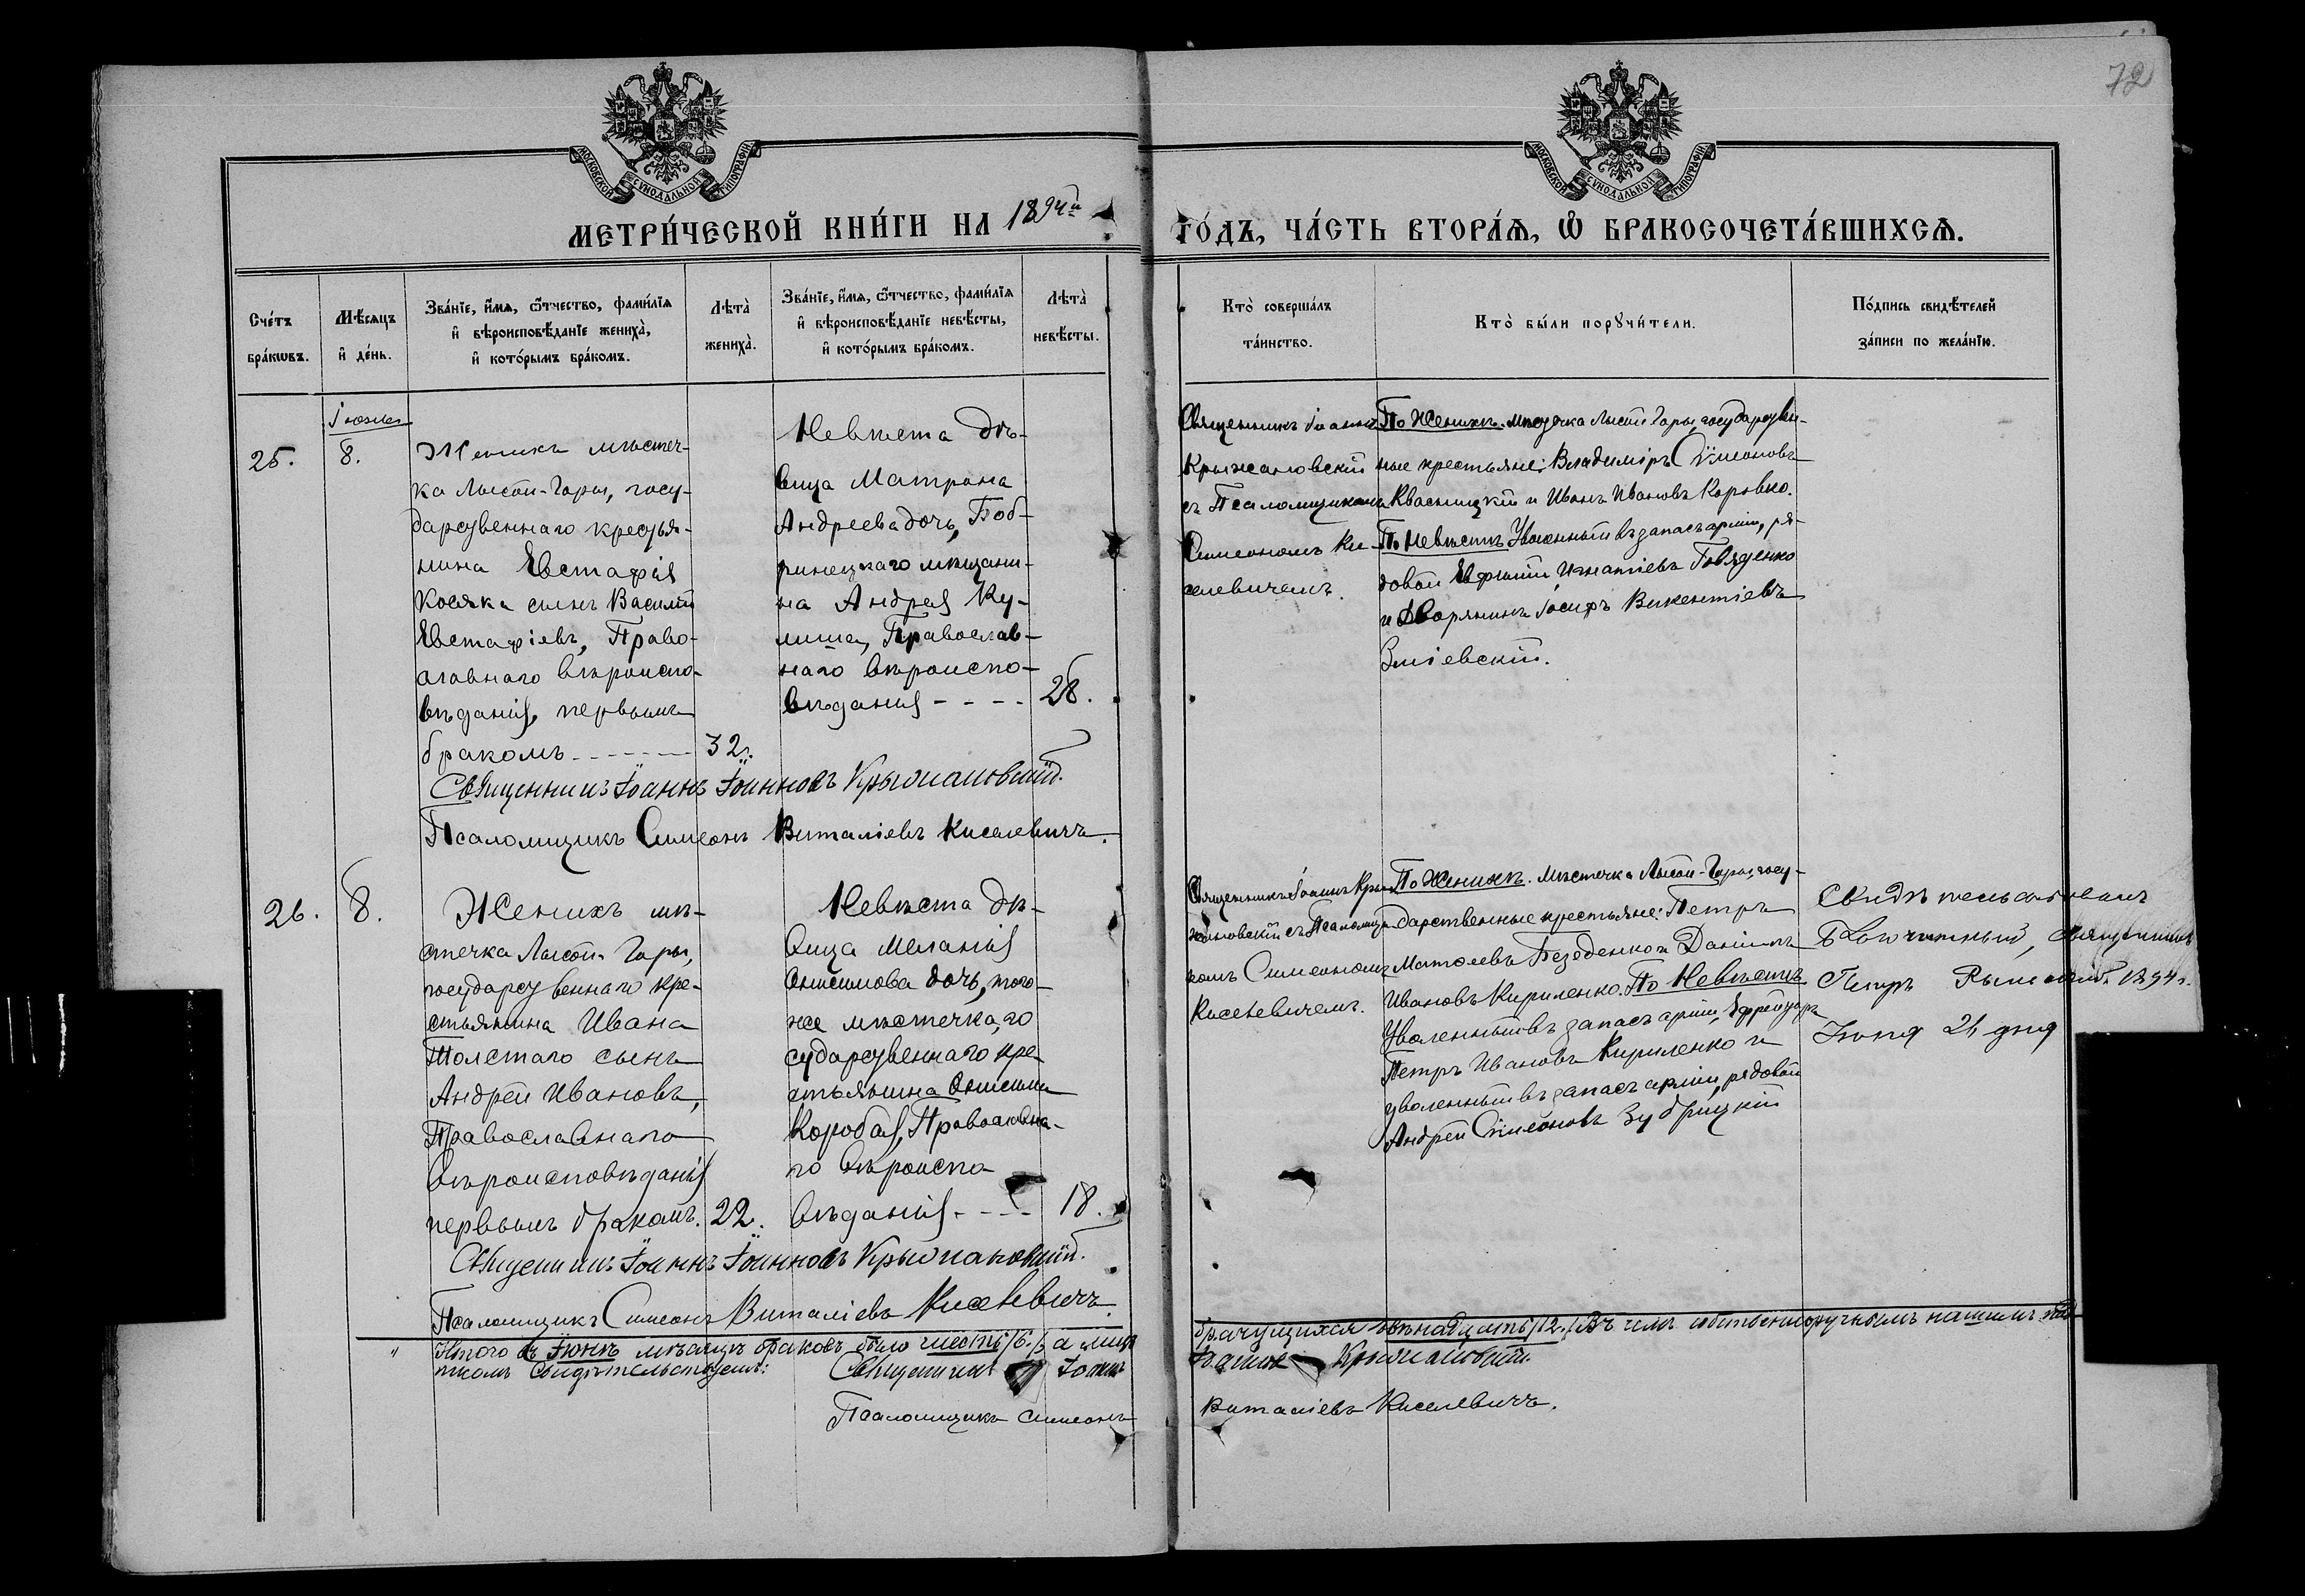 72
МОСКОВСКОЙ СУНОДАЛЬНОЙ ТИПОГРАФІИ
МОСКОВСКОЙ СУНОДАЛЬНОЙ ТИПОГРАФІИ
МЕТРИ́ЧЕСКОЙ КНИ́ГИ НА 1894й
ГО́ДЪ, ЧА́СТЬ ВТОРА́Ѧ, Ѡ҆ БРАКОСОЧЕТА́ВШИХСѦ.
Сче́тъ
бра́кѡвъ.
Мѣ́сѧцъ
и҆ де́нь.
Зва́нїе, и҆́мѧ, ѻ҆́тчество, фами́лїѧ
и҆ вѣроисповѣ́данїе жениха̀,
и҆ кото́рымъ бра́комъ.
Лѣ́та̀
жениха̀.
Зва́нїе, и҆́мѧ, ѻ҆́тчество, фами́лїѧ
и҆ вѣроисповѣ́данїе невѣ́сты,
и҆ кото́рымъ бра́комъ.
Лѣ́та̀
невѣ́сты.
Кто̀ соверша́лъ
та́инство.
Кто̀ бы́ли порꙋчи́тели.
По́дпись свидѣ́телей
за́писи по жела́нїю.
25.
Іюня
8.
Женихъ мѣстеч-
ка Лысой-Горы, госу-
дарственнаго крестья-
нина Евстафія
Косяка сынъ Василій
Евстафіевъ, Право-
славнаго вѣроиспо-
вѣданія, первымъ
бракомъ - - - - - 32.
Невѣста дѣ-
вица Матрона
Андреева дочь, Боб-
ринецкаго мѣщани-
на Андрея Ку-
лиша, Православ-
наго вѣроиспо-
вѣданія - - - - 28.
Священникъ Іоаннъ
Крыжановскій
съ Псаломщикомъ
Симеономъ Ки-
селевичемъ.
По Женихѣ. мѣстечка Лысой Горы, государствен-
ные крестьяне: Владиміръ Симеоновъ
Квасницкій и Иванъ Ивановъ Коровко.
По Невѣстѣ Уволенный въ запасъ арміи, ря-
довой Евфимій Игнатіевъ Говяденко
и Дворянинъ Іосифъ Викентіевъ
Зміевскій.
Священникъ Іоаннъ Іоанновъ Крыжановскій.
Псаломщикъ Симеонъ Виталіевъ Киселевичъ.
26.
8.
Женихъ мѣ-
стечка Лысой-Горы,
государственнаго кре-
стьянина Ивана
Толстаго сынъ
Андрей Ивановъ,
Православнаго
вѣроисповѣданія
первымъ бракомъ. 22.
Невѣста дѣ-
вица Меланія
Онисимова дочь, того-
же мѣстечка, го
сударственнаго кре-
стьянина Онисима
Коробая, Православна-
го вѣроиспо
вѣданія - - - - 18.
Священникъ Іоаннъ Кры-
жановскій съ Псаломщи-
комъ Симеономъ
Киселевичемъ.
По Женихѣ. Мѣстечка Лысой-Горы, госу-
дарственные крестьяне: Петръ
Безоденко и Даніилъ
Ивановъ Кириленко. По Невѣстѣ
Уволенный въ запасъ арміи, Ефрейторъ
Петръ Ивановъ Кириленко и
уволенный въ запасъ арміи, рядовой
Андрей Симеоновъ Зубрицкій
Свидѣтельствовалъ
Благочинный, Священникъ
Петръ 1894 г.
Іюня 21 дня
Священникъ Іоаннъ Іоанновъ Крыжановскій.
Псаломщикъ Симеонъ Виталіевъ Киселевичъ.
Итого въ Іюнѣ мѣсяцѣ браковъ было шесть /6./, а лицъ
брачущихся двѣнадцать /12./ Въ чемъ собственноручнымъ нашимъ под-
писомъ свидѣтельствуемъ: Священникъ Іоаннъ
Іоанновъ Крыжановскій.
Псаломщикъ Симеонъ
Виталіевъ Киселевичъ.